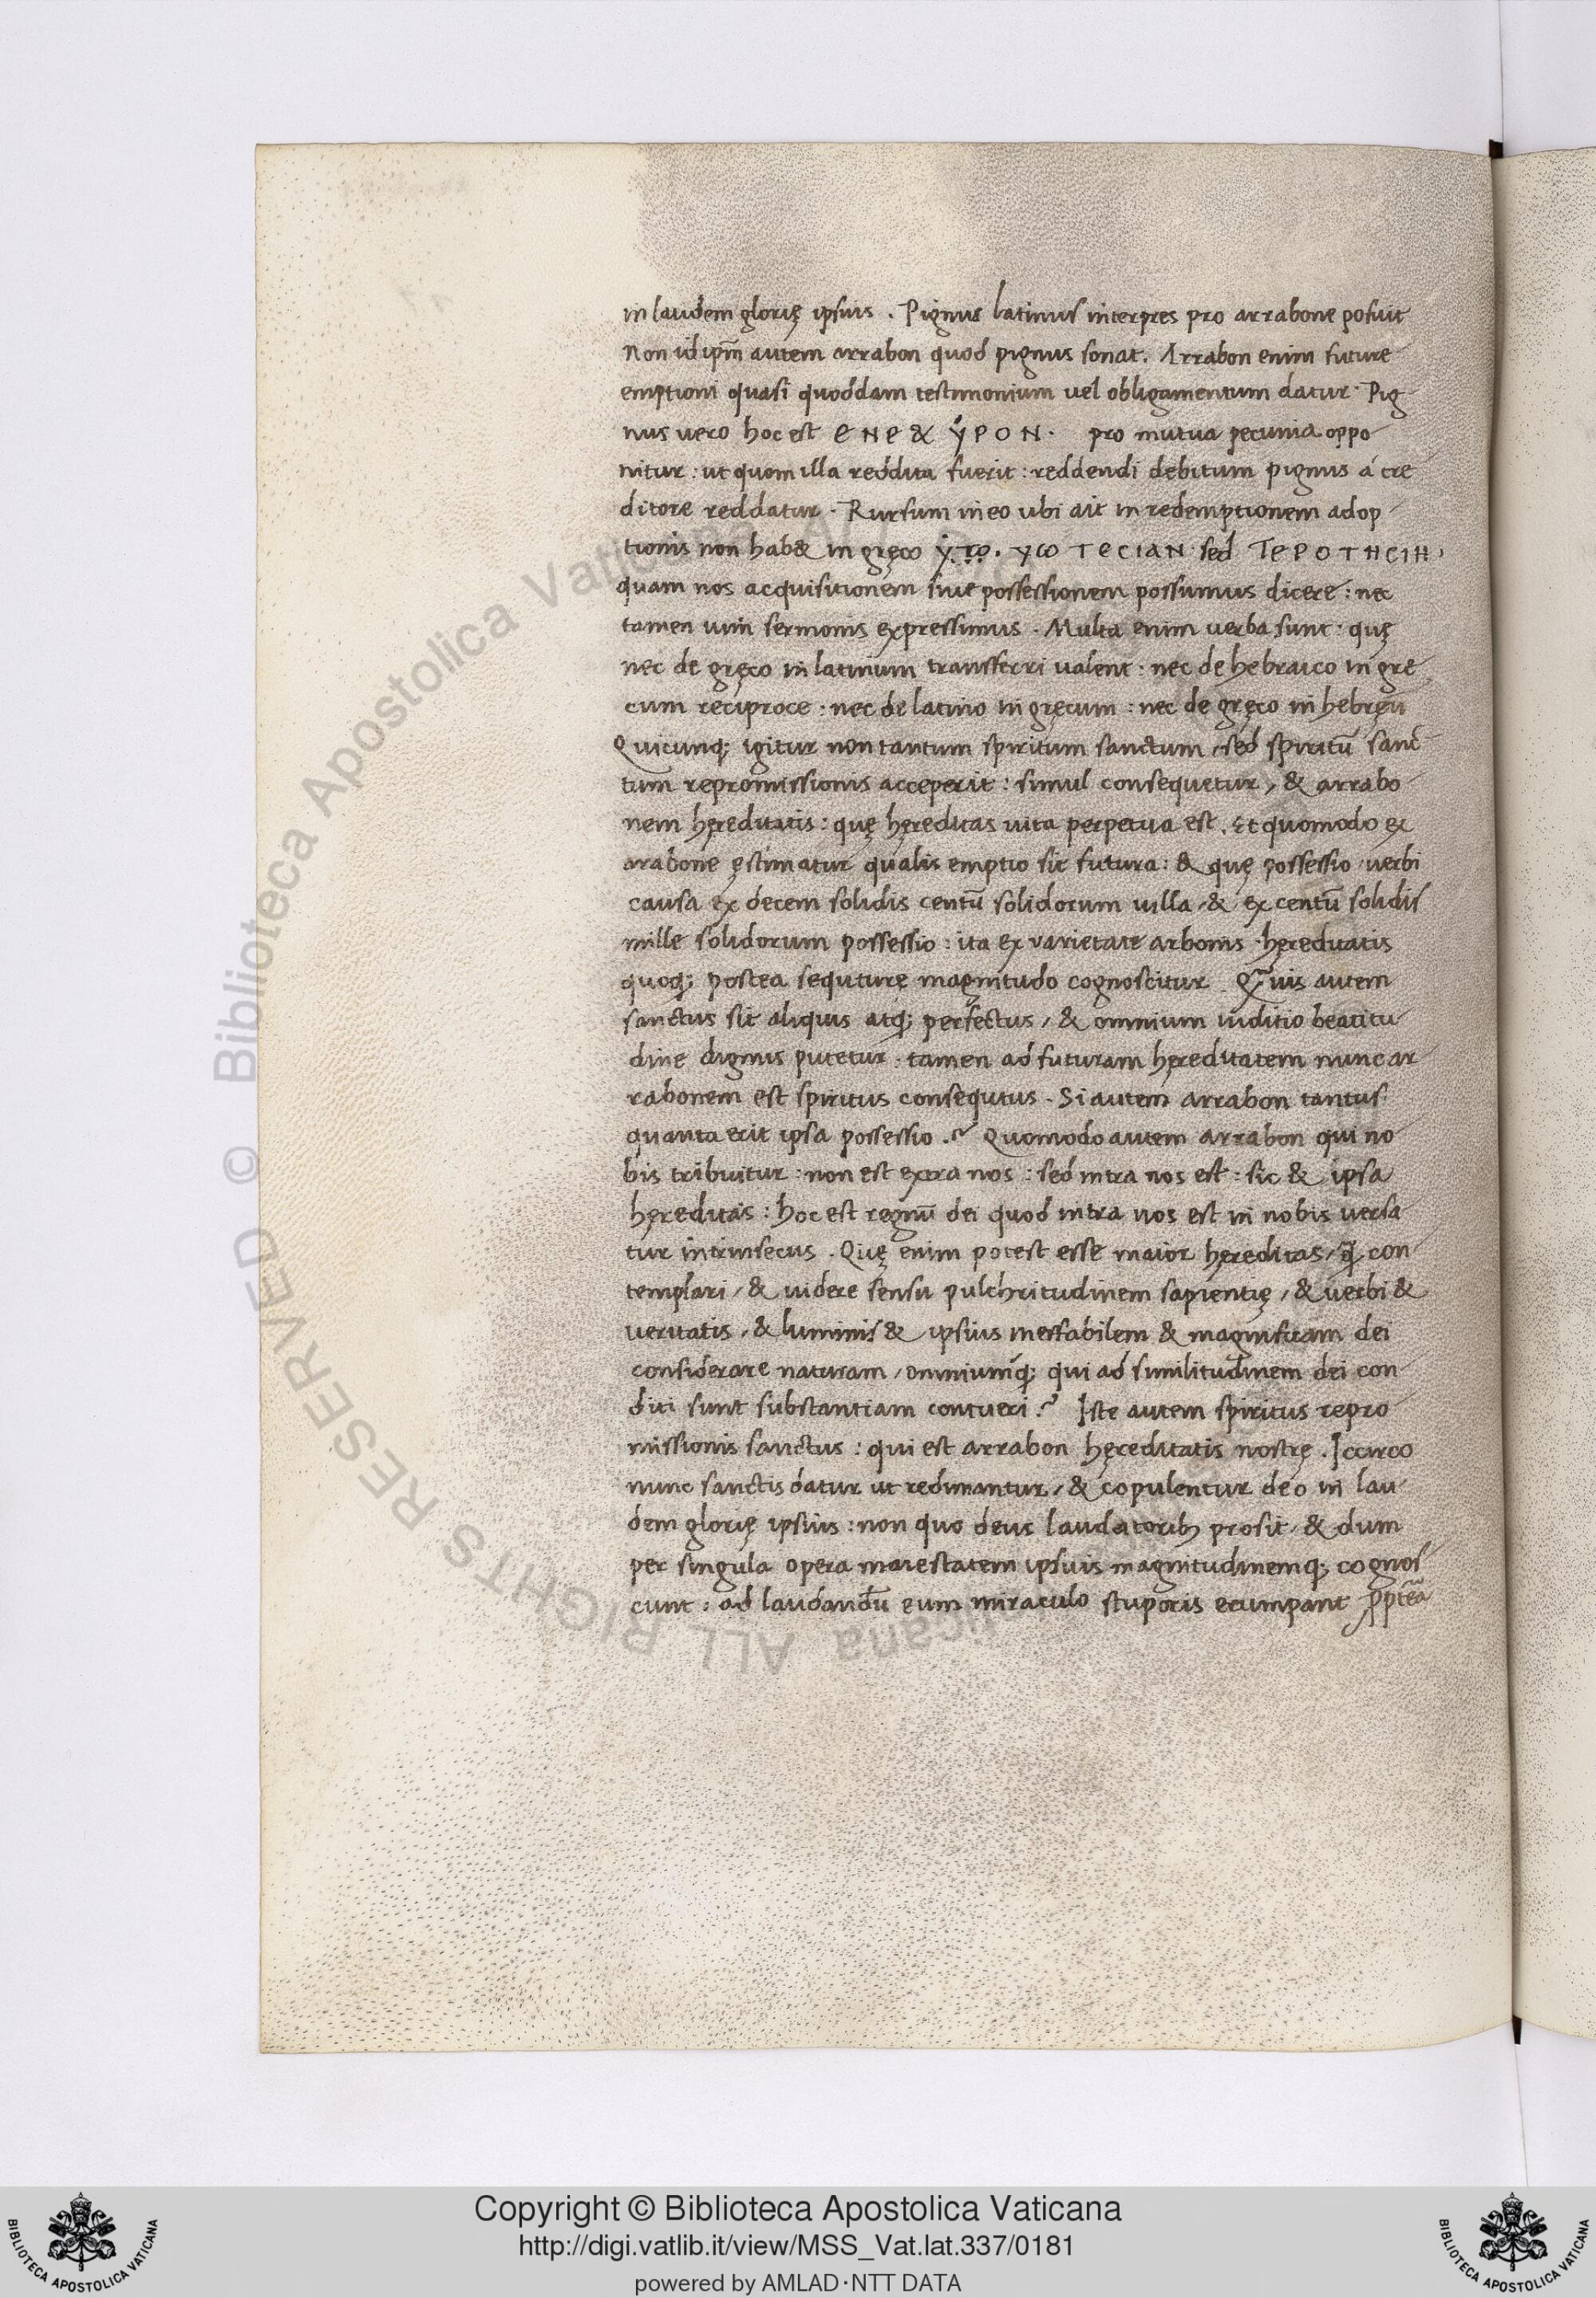 in laudem glorię ipsius . Pignus latinus interpres pro arrabone posuit
Non idipm̄ autem arrabon quod pignus sonat . Arrabon enim future
emptioni quasi quoddam testimonium vel obligamentum datur · Pig
nus uero hoc est ЄNЄ & ẏPON · pro mutua pecunia oppo
nitur : ut quom illa reddita fuerit : reddendi debitum pignus á cre
ditore reddatur · Rursum in eo ubi ait in redemptionem adop
tionis non hab& in gręco ẏΤΟ . yω TECIAN · sed TЄPOTHCIH ·
quam nos acquisitionem siue possessionem possumus dicere : nec
tamen uim sermonis expressimus . Multa enim uerba sunt : quę
nec de gręco in latinum transferri ualent : nec de hebraico in gre
cum reciproce : nec de latino in gręcum : nec de gręco in hebręu
Quicunq; igitur non tantum spiritum sanctum , sed spiritū sanc
tum repromissionis acceperit : simul consequetur , & arrabo
nem hęreditatis : quę hęreditas uita perpetua est . Et quomodo ex
arabone ęstimatur qualis emptio sit futura : & quę possessio · uerbi
causa ex decem solidis centū solidorum uilla , & ex centū solidis
mille solidorum possessio : ita ex varietate arbonis · hęreditatis
quoq; postea sequturę magnitudo cognoscitur . Q̃uis autem
sanctus sit aliquis atq; perfectus , & omnium iuditio beatitu
dine dignus putetur · tamen ad futuram hęreditatem nunc ar
rabonem est spiritus consequtus . Si autem arrabon tantus :
quanta erit ipsa possessio .? Quomodo autem arrabon qui no
bis tribuitur : non est extra nos : sed intra nos est : sic & ipsa
hęreditas : hoc est regnū dei quod intra nos est in nobis uersa
tur intrinsecus . Quę enim potest esse maior hęreditas , q̃ con
templari , & uidere sensu pulchritudinem sapientię , & uerbi &
ueritatis , & luminis & ipsius ineffabilem & magnificam dei
considerare naturam , omniumq; qui ad similitudinem dei con
diti sunt substantiam contueri .? Iste autem spiritus repro
missionis sanctus : qui est arrabon hęreditatis nostrę . Iccirco
nunc sanctis datur ut redimantur , & copulentur deo in lau
dem glorię ipsius : non quo deus laudatorib; prosit , & dum
per singula opera maiestatem ipsius magnitudinemq; cognos
cunt : ad laudandū eum miraculo stuporis erumpant ppteā
Copyright © Biblioteca Apostolica Vaticana
http://digi.vatlib.it/view/MSS_Vat.lat.337/0181
powered by AMLAD·NTT DATA
BIBLIOTECA APOSTOLICA VATICANA
BIBLIOTECA APOSTOLICA VATICANA
© Biblioteca Apostolica Vaticana ALL RIGHTS RESERVED